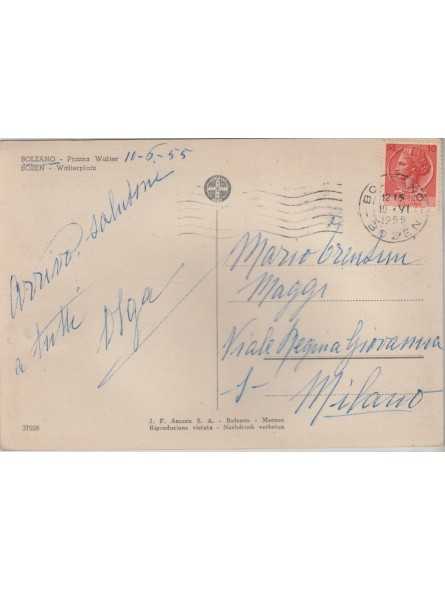 BOLZANO - Piazza Walter 10-6-55
BOZEN - Walterplatz
Arrivo. Salutoni
a tutti
Olga
12 15
10 VI
1955
BOZEN
Mario
Maggi
Viale Regina Giovanna
Milano
J. F. Amonn S. A. - Bolzano - Merano
Riproduzione vietata - Nachdruck verboten
37026